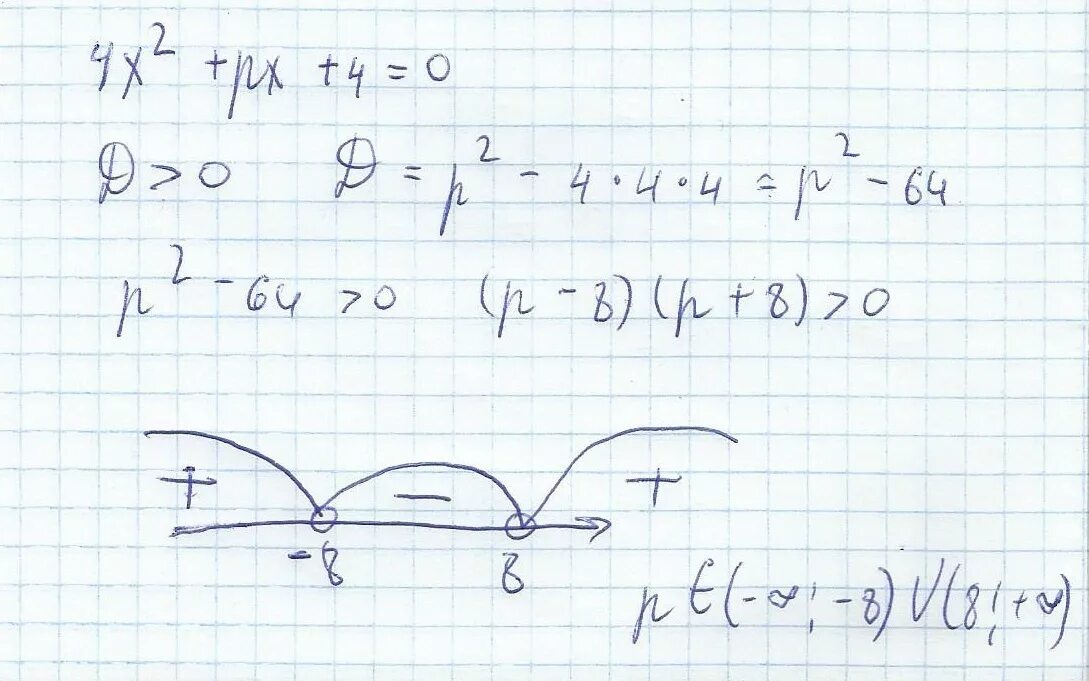 4x² + px + 4 = 0
D > 0 D = p² - 4 · 4 · 4 = p² - 64
p² - 64 > 0 (p - 8)(p + 8) > 0
+ − +
-8 8
p ∈ (-∞; -8) ∪ (8; +∞)